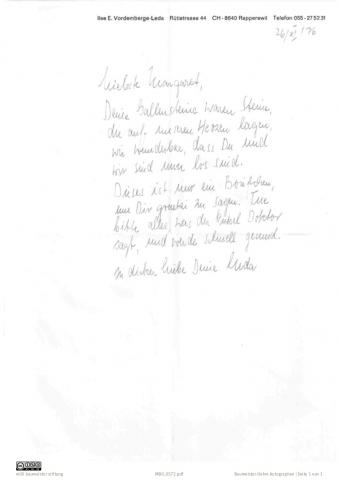 Ilse E. Vordemberge-Leda Rütistrasse 44 CH - 8640 Rapperswil Telefon 055 - 27 52 31
26/XI/76
Liebste Margaret,
Deine Gallensteine waren Steine,
die auf meinem Herzen lagen,
wie wunderbar, dass Du und
wir sie nun los sind.
Dieses ist nur ein
um Dir zu sagen. Tue
bitte alles, was der Onkel Doktor
sagt, und werde schnell gesund.
In dicker Liebe Deine Leda
willi baumeister stiftung MBG_0572.pdf Baumeister-Rehm Autographen | Seite 1 von 1